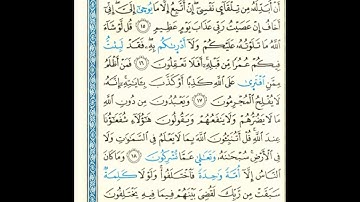 أَنْ أُبَدِّلَهُۥ مِن تِلْقَآئِ نَفْسِىٓ إِنْ أَتَّبِعُ إِلَّا مَا يُوحَىٰٓ إِلَىَّ إِنِّىٓ
أَخَافُ إِنْ عَصَيْتُ رَبِّى عَذَابَ يَوْمٍ عَظِيمٍ ١٥ قُل لَّوْ شَآءَ
ٱللَّهُ مَا تَلَوْتُهُۥ عَلَيْكُمْ وَلَآ أَدْرَىٰكُم بِهِۦ فَقَدْ لَبِثْتُ
فِيكُمْ عُمُرًا مِّن قَبْلِهِۦٓ أَفَلَا تَعْقِلُونَ ١٦ فَمَنْ أَظْلَمُ
مِمَّنِ ٱفْتَرَىٰ عَلَى ٱللَّهِ كَذِبًا أَوْ كَذَّبَ بِـَٔايَـٰتِهِۦٓ إِنَّهُۥ
لَا يُفْلِحُ ٱلْمُجْرِمُونَ ١٧ وَيَعْبُدُونَ مِن دُونِ ٱللَّهِ
مَا لَا يَضُرُّهُمْ وَلَا يَنفَعُهُمْ وَيَقُولُونَ هَـٰٓؤُلَآءِ شُفَعَـٰٓؤُنَا
عِندَ ٱللَّهِ قُلْ أَتُنَبِّـُٔونَ ٱللَّهَ بِمَا لَا يَعْلَمُ فِى ٱلسَّمَـٰوَٰتِ وَلَا
فِى ٱلْأَرْضِ سُبْحَـٰنَهُۥ وَتَعَـٰلَىٰ عَمَّا يُشْرِكُونَ ١٨ وَمَا كَانَ
ٱلنَّاسُ إِلَّآ أُمَّةً وَٰحِدَةً فَٱخْتَلَفُوا۟ وَلَوْلَا كَلِمَةٌ
سَبَقَتْ مِن رَّبِّكَ لَقُضِىَ بَيْنَهُمْ فِيمَا فِيهِ يَخْتَلِفُونَ